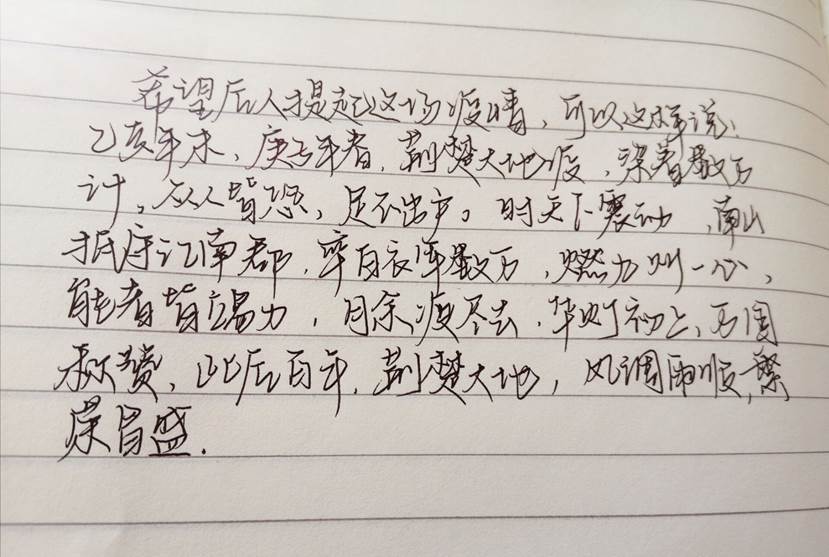 希望后人提起这场疫情，可以这样说：
乙亥年末，庚子年春，荆楚大地疫，染者数万
计，众人皆恐，足不出户。时天下震动，南山
抵守江南都，率白衣军数万，燃力州一心，
能者皆竭力，月余疫尽去，华灯初上，万国
称赞，此后百年，荆楚大地，风调雨顺，繁
荣昌盛.